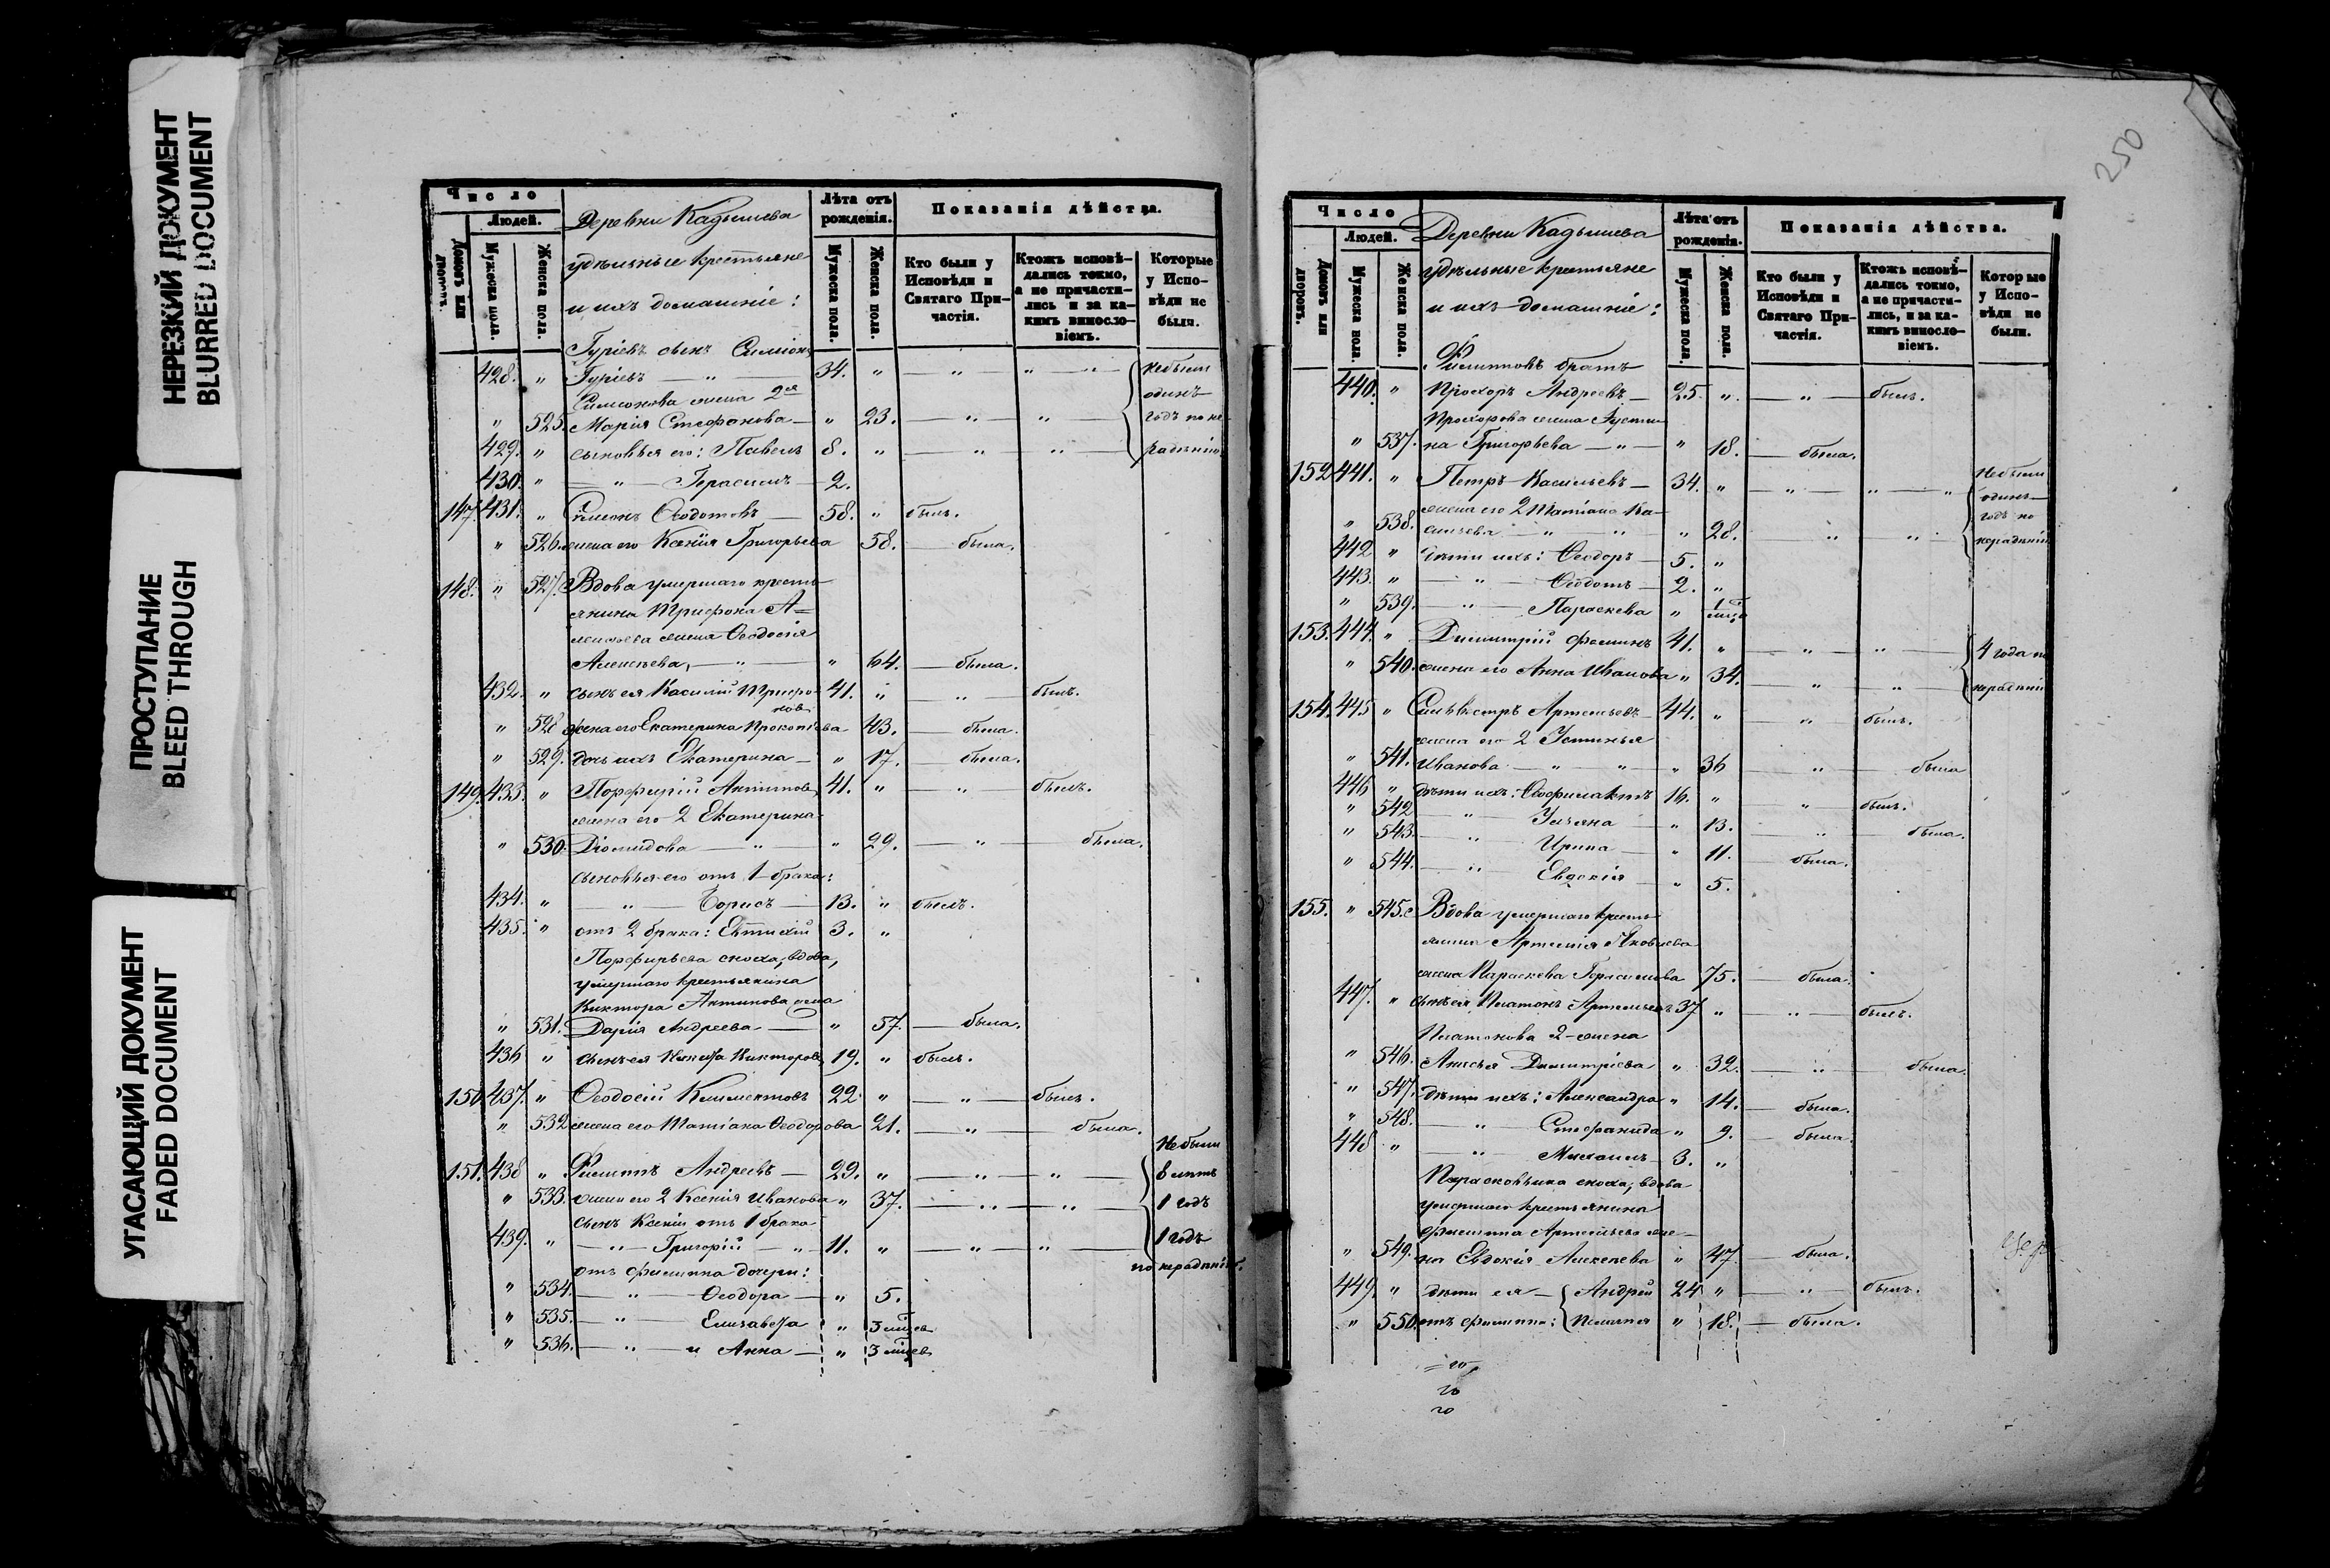 НЕРЕЗКИЙ ДОКУМЕНТ
BLURRED DOCUMENT
ПРОСТУПАНИЕ
BLEED THROUGH
УГАСАЮЩИЙ ДОКУМЕНТ
FADED DOCUMENT
Число
Людей.
Домовъ или дворовъ.
Мужеска пола.
Женска пола.
Деревни Кадышева
удѣльные крестьяне
и ихъ домашніе:
Лѣта отъ рожденія.
Мужеска пола.
Женска пола.
Показанія дѣйства.
Кто были у Исповѣди и Святаго Причастія.
Ктожъ исповѣдались токмо, а не причастились и за какимъ винословіемъ.
Которые у Исповѣди не были.
Гуріевъ сынъ Симіонъ
428. " Гуріевъ — " 34. " — " " " небыли
Симіонова жена 2ая одинъ
" 525. Марія Стефанова — " 23. — " " годъ по не-
429. " сыновья его: Павелъ 8. " — " " радѣнію
430. " — " — Герасимъ — 2.
147. 431. " Симонъ Ѳедотовъ — 58. " былъ.
" 526. жена его Ксенія Григорьева 58. — была.
148. " 527. Вдова умершаго кресть-
янина Трифона А-
жена Ѳеодосія
Алексѣева, — " — " 64. — была.
432. " сынъ ея Василій Трифо- 41. " — " — былъ.
новъ
" 528 жена его Екатерина Прокопіева 43. — была.
" 529. дочь ихъ Екатерина — " 17. — была.
149. 433. " Порфирій Антиповъ 41. " — " — былъ.
жена его 2 Екатерина
" 530. Діомидова — " — " 29. — " — была.
сыновья его отъ 1 брака:
434. " — " — Борисъ — 13. " былъ.
435. " отъ 2 брака: Евтихій 3. "
Порфирьева сноха, вдова,
умершаго крестьянина
Виктора Антипова жена
" 531. Дарія Андреева — " 57. — была.
436 " сынъ ея Никита Викторовъ 19. " былъ.
150. 437. " Ѳеодосій Климентовъ 22 " — " — былъ.
" 532 жена его Татіана Ѳеодорова 21. — " — была.
Небыли
151. 438 " Филиппъ Андреевъ — 29. " — " — "
" 533. жена его 2 Ксенія Иванова " 37. — " — " 1 годъ
сынъ Ксеніи отъ 1 брака
439. " — " — Григорій — " 11. " — " — " 1 годъ
отъ Филиппа дочери: по нерадѣнію.
" 534. — " — Ѳеодора — " 5.
" 535. — " — Елизавета " 3 мѣсев
" 536. — " — и Анна — " 3 мѣсев
250
Число
Людей.
Домовъ или дворовъ.
Мужеска пола.
Женска пола.
Деревни Кадышева
удѣльные крестьяне
и ихъ домашніе:
Лѣта отъ рожденія.
Мужеска пола.
Женска пола.
Показанія дѣйства.
Кто были у Исповѣди и Святаго Причастія.
Ктожъ исповѣдались токмо, а не причастились, и за какимъ винословіемъ.
Которые у Исповѣди не были.
Филипповъ братъ
440. " Прохоръ Андреевъ — 25. " — " — былъ.
Прохорова жена Густи-
" 537. на Григорьева — " — " 18. — была.
152 441. " Петръ Васильевъ — 34. " — " — " " Небыли
жена его 2 Татіана Ва- одинъ
" 538. сильева " " " 28. " " годъ по
442 " дѣти ихъ: Ѳеодоръ 5. " нерадѣнію
443. " — " — Ѳедотъ — 2. "
" 539. — " — Параскева "
153. 444. " Димитрій Фоминъ 41. " — " — " 4 года по
" 540. жена его Анна Иванова " 34. — " — " нерадѣнію
154. 445 " Сильвестръ Артемьевъ 44. " — " — былъ.
жена его 2 Устинья
" 541. Иванова — " " " 36 — " — была
446 " дѣти ихъ: Ѳеофилактъ 16. " " былъ.
" 542 — " — Ульяна — " 13. — " — была.
" 543. — " — Ирина — " 11. — была.
" 544. — " — Евдокія — " 5.
155. " 545. Вдова умершаго кресть-
янина Артемія Яковлева
жена Параскева Герасимова 75. — была.
447. " сынъ ея Платонъ Артемьевъ 37 " — " — былъ.
Платонова 2-жена
" 546. Анисья Димитріева " 32. — " — была.
" 547. дѣти ихъ: Александра " 14. — была.
" 548. — " — Стефанида " 9. — была.
448 " — " — Михаилъ 3. "
Парасковьина сноха, вдова
умершаго крестьянина
Филиппа Артемьева же-
" 549. на Евдокія Алексѣева " 47. — была.
449. " дѣти ея — Андрей 24 " — " — былъ.
" 550. отъ Филиппа: Пелагея " 18. — была.